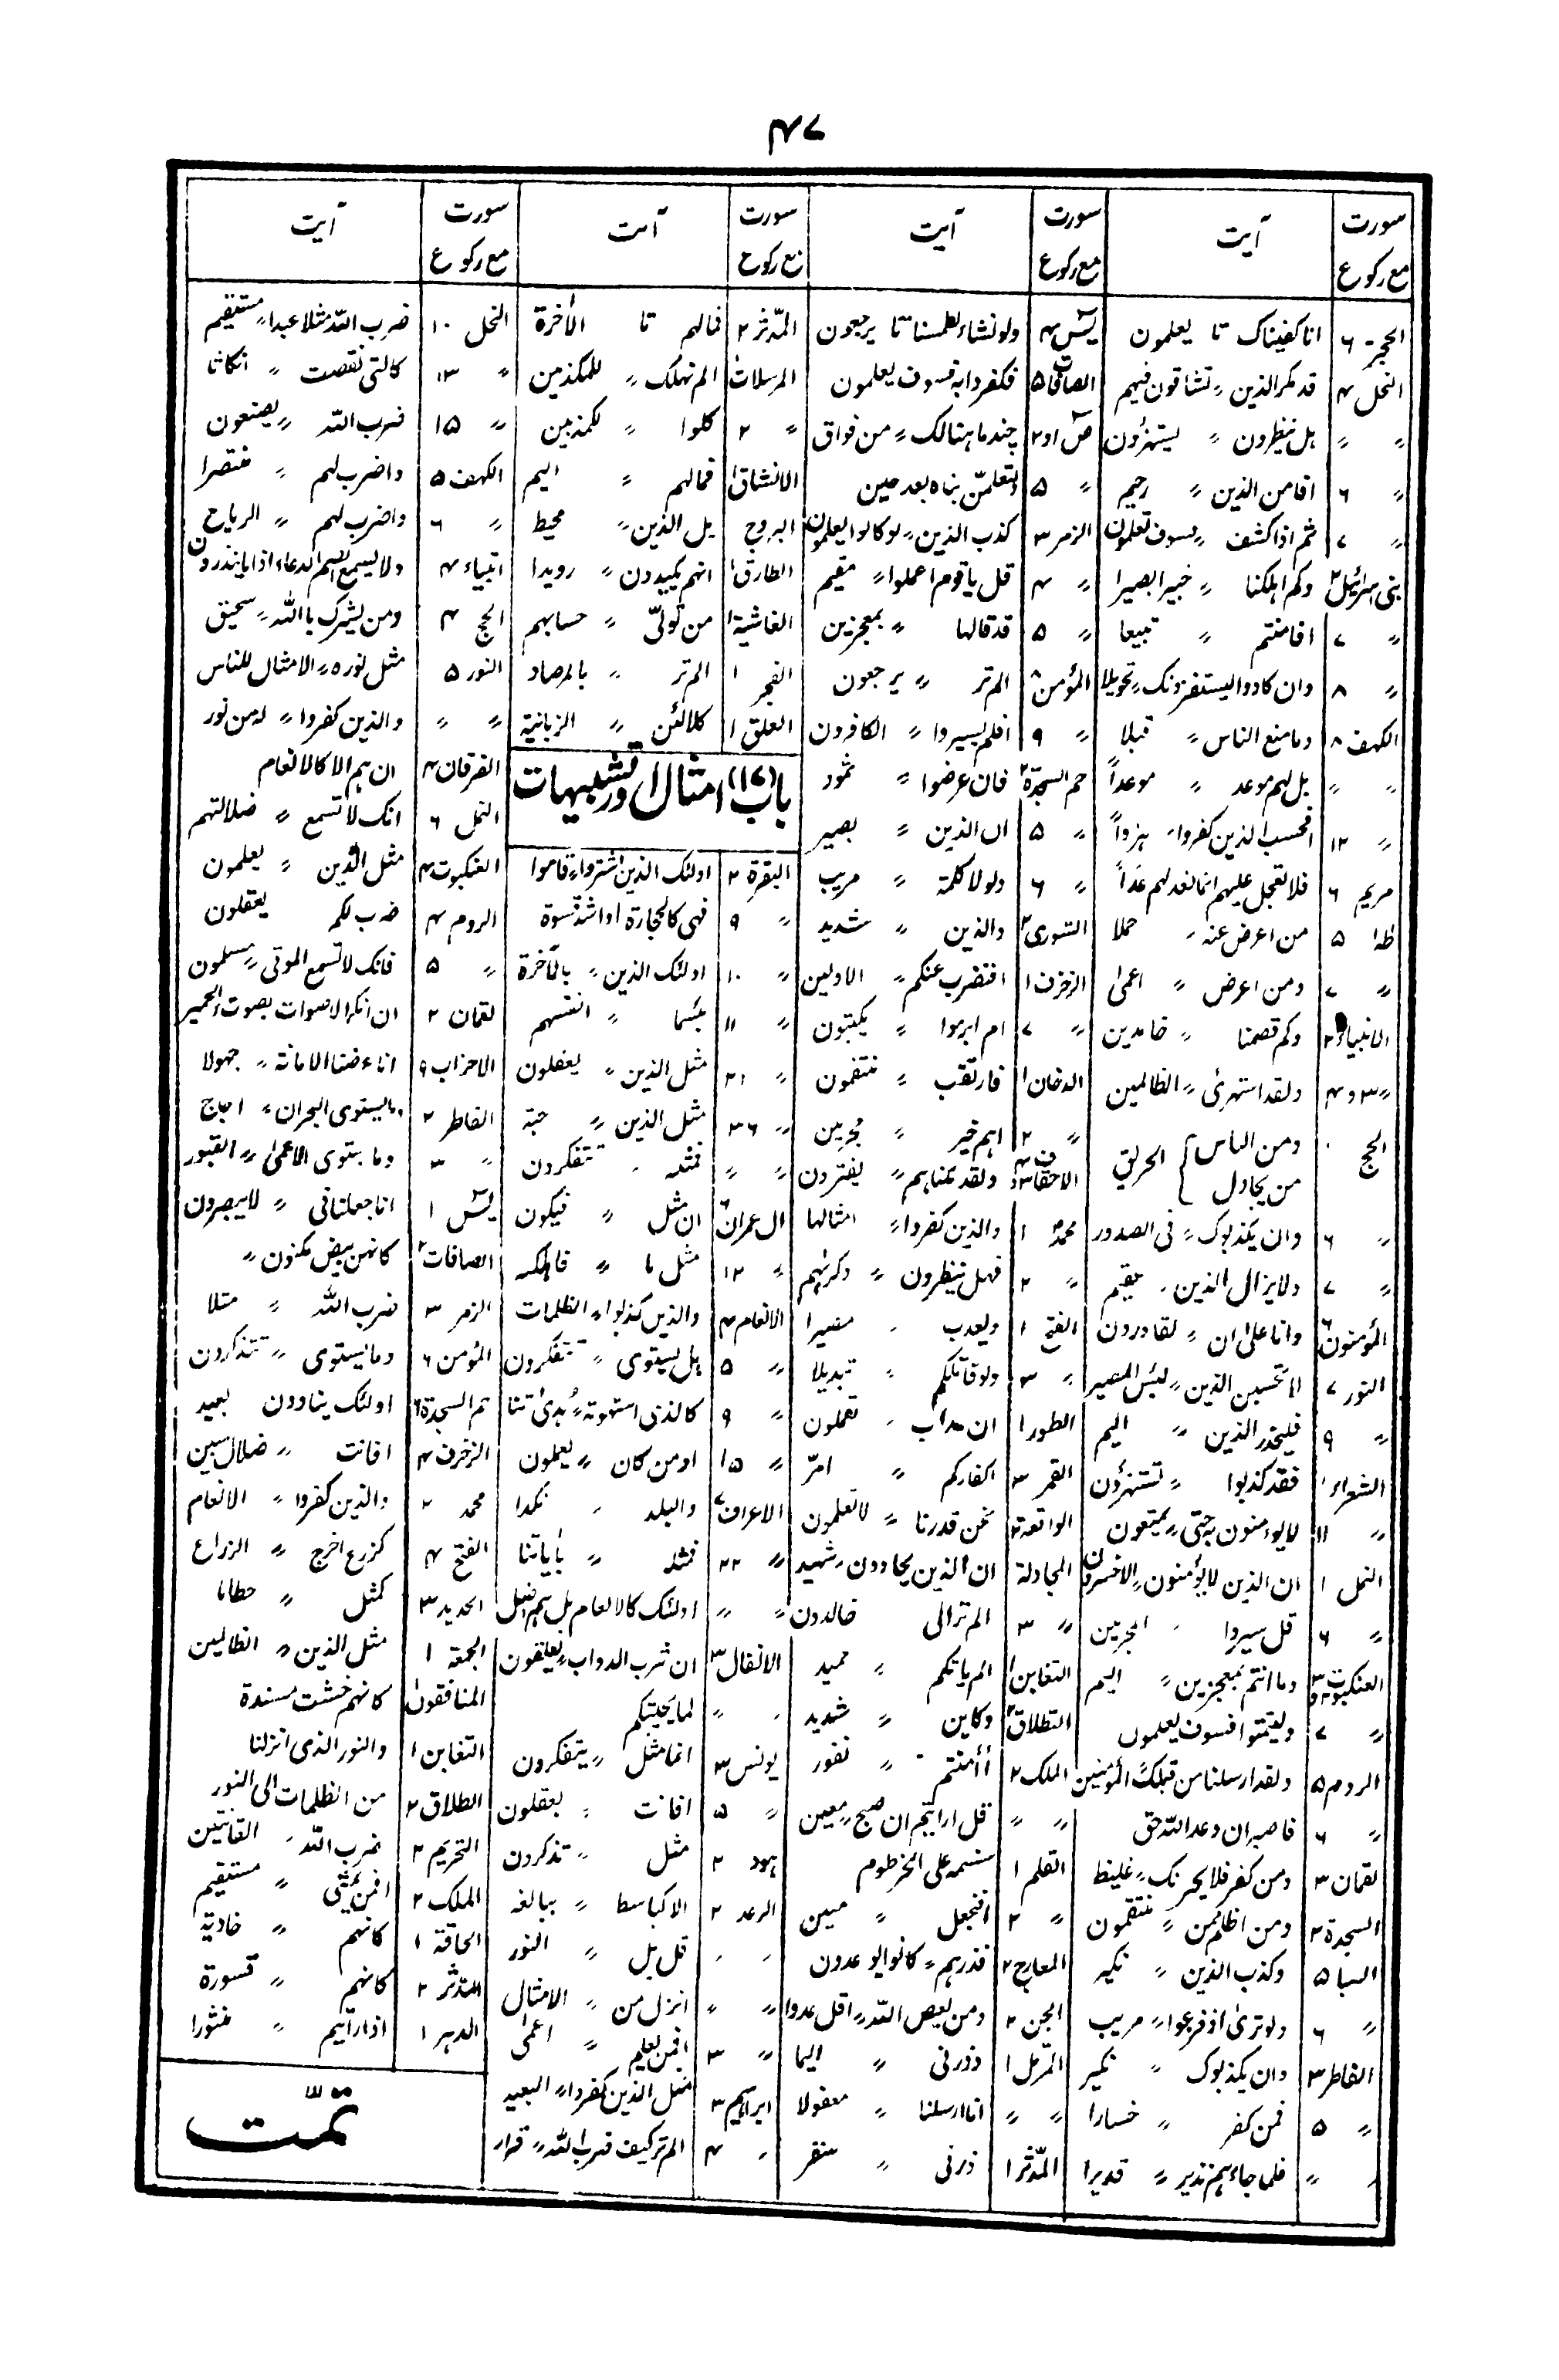 ۴۷
سورت مع رکوع آیت
الحجر ۶ انا کفیناک تا یعلمون
النحل ۴ قد مکر الذین ″ تشاقون فیہم
″ ″ ہل ینظرون ″ یستہزؤن
″ ۶ افامن الذین ″ رحیم
″ ۷ ثم اذا کشف ″ فسوف تعلمون
بنی اسرائیل ۲ وکم اہلکنا ″ خبیرا بصیرا
″ ۷ افامنتم ″ تبیعا
″ ۸ وان کادوا لیستفزونک ″ تحویلا
الکہف ۸ وما منع الناس ″ قبلا
″ ″ بل لہم موعد ″ موعداً
″ ۱۲ افحسب الذین کفروا ″ ہزواً
مریم ۶ فلا تعجل علیہم انما نعد لہم عداً
طہٰ ۵ من اعرض عنہ ″ حملا
″ ۷ ومن اعرض ″ اعمیٰ
الانبیاء ۲ وکم قصمنا ″ خامدین
″ ۳ و ۴ ولقد استہزئ ″ الظالمین
الحج ومن الناس من یجادل } الحریق
″ ۶ وان یکذبوک ″ فی الصدور
″ ۷ ولا یزال الذین ″ مقیم
المؤمنون ۶ وانا علیٰ ان ″ لقادرون
النور ۷ لا تحسبن الذین ″ لبئس المصیر
″ ۹ فلیحذر الذین ″ الیم
الشعراء ۱ فقد کذبوا ″ تستہزؤن
″ ۱۱ لا یؤمنون بہ حتی ″ یمتعون
النمل ۱ ان الذین لا یؤمنون ″ الاخسرون
″ ۶ قل سیروا ″ المجرمین
العنکبوت ۳ وما انتم بمعجزین ″ الیم
″ ۷ ولیتمتعوا فسوف یعلمون
الروم ۵ ولقد ارسلنا من قبلک المؤمنین
″ ۶ فاصبر ان وعد اللہ حق
لقمان ۳ ومن کفر فلا یحزنک ″ غلیظ
السجدۃ ۲ ومن اظلم ممن ″ منتقمون
السبا ۵ وکذب الذین ″ نکیر
″ ۶ ولو تریٰ اذ فزعوا ″ مریب
الفاطر ۳ وان یکذبوک ″ نکیر
″ ۵ فمن کفر ″ خسارا
″ ″ فلما جاءہم نذیر ″ قدیرا
سورت مع رکوع آیت
یٰس ۴ ولو نشاء لطمسنا تا یرجعون
الصافات ۵ فکفروا بہ فسوف یعلمون
ص ۱ و ۲ جند ما ہنالک ″ من فواق
″ ۵ ولتعلمن نباہ بعد حین
الزمر ۳ کذب الذین ″ لو کانوا یعلمون
″ ۴ قل یا قوم اعملوا ″ مقیم
″ ۵ قد قالہا ″ بمعجزین
المؤمن ۸ الم تر ″ یرجعون
″ ۹ افلم یسیروا ″ الکافرون
حم السجدۃ ۲ فان عرضوا ″ ثمود
″ ۵ ان الذین ″ بصیر
″ ۶ ولولا کلمۃ ″ مریب
الشوریٰ ۲ والذین ″ شدید
الزخرف ۱ افنضرب عنکم ″ الاولین
″ ۷ ام ابرموا ″ یکتبون
الدخان ۱ فارتقب ″ منتقمون
″ ۲ اہم خیر ″ مجرمین
الاحقاف ولقد مکناہم ″ یفترون
محمد ۱ والذین کفروا ″ امثالہا
″ ۲ فہل ینظرون ″ ذکرٰہم
الفتح ۱ ویعذب ″ مصیرا
″ ۳ ولو قاتلکم ″ تبدیلا
الطور ۱ ان عذاب ″ تعملون
القمر ۳ اکفارکم ″ امرّ
الواقعہ ۲ نحن قدرنا ″ لا تعلمون
المجادلۃ ان الذین یحادون ″ شہید
″ ۳ الم تر الی خالدون
التغابن ۱ الم یاتکم ″ حمید
الطلاق ۲ وکاین ″ شدید
الملک ۲ أأمنتم ″ نفور
″ ″ قل ارایتم ان اصبح ″ معین
القلم ۱ سنسمہ علی الخرطوم
″ ۲ افنجعل ″ مبین
المعارج ۲ فذرہم ″ کانوا یوعدون
الجن ۲ ومن یعص اللہ ″ اقل عددا
المزمل ۱ وذرنی ″ الیما
″ ″ انا ارسلنا ″ مفعولا
المدثر ۱ ذرنی ″ سقر
سورت مع رکوع آیت
المدثر ۲ فمالہم تا الاٰخرۃ
المرسلات ۱ الم نہلک ″ للمکذبین
″ ۲ کلوا ″ للمکذبین
الانشاق ۱ فمالہم ″ الیم
البروج بل الذین ″ محیط
الطارق ۱ انہم یکیدون ″ رویدا
الغاشیۃ ۱ من تولّی ″ حسابہم
الفجر ۱ الم تر ″ بالمرصاد
العلق ۱ کلا لئن ″ الزبانیۃ
باب (۱۷) امثال اور تشبیہات
البقرۃ ۲ اولئک الذین اشتروا ″ قاموا
″ ۹ فہی کالحجارۃ او اشد قسوۃ
″ ۱۰ اولئک الذین ″ بالاٰخرۃ
″ ۱۱ بئسما ″ انفسہم
″ ۲۱ مثل الذین ″ یعقلون
″ ۳۶ مثل الذین ″ حبۃ
″ ″ فمثلہ ″ تتفکرون
ال عمران ۶ ان مثل ″ فیکون
″ ۱۲ مثل ما ″ فاہلکتہ
الانعام ۴ والذین کذبوا ″ الظلمات
″ ۵ ہل یستوی ″ تتفکرون
″ ۹ کالذی استہوتہ ″ الہدیٰ ائتنا
″ ۱۵ اومن کان ″ یعملون
الاعراف ۷ والبلد ″ نکدا
″ ۲۲ فمثلہ ″ بایاتنا
″ ″ اولئک کالانعام بل ہم اضل
الانفال ۳ ان شر الدواب ″ یعقلون
″ ″ لما یحییکم
یونس ۳ انما مثل ″ یتفکرون
″ ۵ افانت ″ یعقلون
ہود ۲ مثل ″ تذکرون
الرعد ۲ الا کباسط ″ ببالغہ
″ ″ قل ہل ″ النور
″ ″ انزل من ″ الامثال
″ ۳ افمن یعلم ″ اعمیٰ
ابراہیم ۳ مثل الذین کفروا ″ البعید
″ ۴ الم تر کیف ضرب اللہ ″ قرار
سورت مع رکوع آیت
النحل ۱۰ ضرب اللہ مثلا عبدا ″ مستقیم
″ ۱۳ کالتی نقضت ″ انکاثا
″ ۱۵ ضرب اللہ ″ یصنعون
الکہف ۵ واضرب لہم ″ منتصرا
″ ۶ واضرب لہم ″ الریاح
انبیاء ۴ ولا یسمع الصم الدعاء اذا ما ینذرون
الحج ۴ ومن یشرک باللہ ″ سحیق
النور ۵ مثل نورہ ″ الامثال للناس
″ ″ والذین کفروا ″ لہ من نور
الفرقان ۴ ان ہم الا کالانعام
النمل ۶ انک لا تسمع ″ ضلالتہم
العنکبوت ۴ مثل الذین ″ یعلمون
الروم ۴ ضرب لکم یعقلون
″ ۵ فانک لا تسمع الموتی ″ مسلمون
لقمان ۲ ان انکر الاصوات بصوت الحمیر
الاحزاب ۹ انا عرضنا الامانۃ ″ جہولا
الفاطر ۲ وما یستوی البحران ″ اجاج
″ ۳ وما یستوی الاعمیٰ ″ القبور
یٰس ۱ انا جعلنا فی ″ لا یبصرون
الصافات ۲ کانہن بیض مکنون ″
الزمر ۳ ضرب اللہ ″ مثلا
المؤمن ۶ وما یستوی ″ تتذکرون
حم السجدۃ ۶ اولئک ینادون بعید
الزخرف ۴ افانت ″ ضلال مبین
محمد ۲ والذین کفروا ″ الانعام
الفتح ۴ کزرع اخرج ″ الزراع
الحدید ۳ کمثل ″ حطاما
الجمعۃ ۱ مثل الذین ″ الظالمین
المنافقون ۱ کانہم خشب مسندۃ
التغابن ۱ والنور الذی انزلنا
الطلاق ۲ من الظلمات الی النور
التحریم ۲ ضرب اللہ ″ القانتین
الملک ۲ افمن یمشی ″ مستقیم
الحاقۃ ۱ کانہم ″ خاویۃ
المدثر ۲ کانہم ″ قسورۃ
الدہر ۱ اذا رایتہم ″ منثورا
تمّت